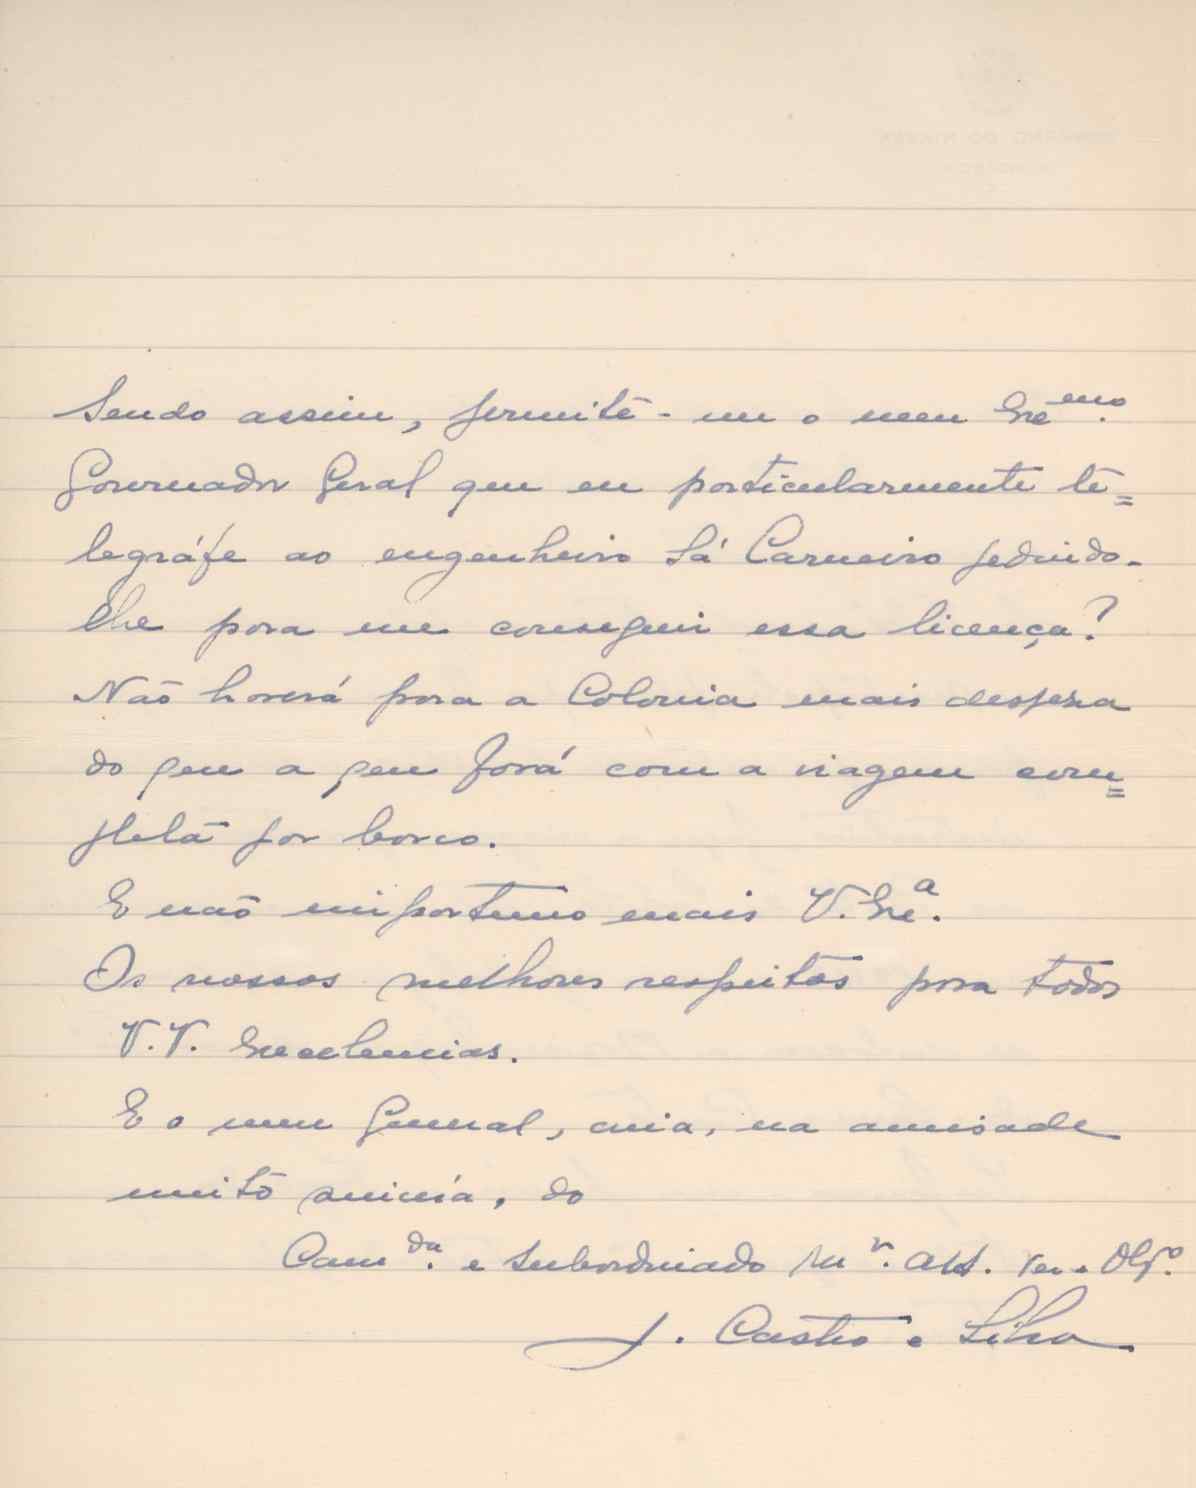 Sendo assim, permite-me o meu Exᵐᵒ.
Governador Geral que eu particularmente te=
legráfe ao engenheiro Sá Carneiro pedindo-
lhe para me conseguir essa licença?
Não haverá para a Colonia mais despesa
do que a que fará com a viagem com=
pleta por barco.
E não importuno mais V. Exᵃ.
Os nossos melhores respeitos para todos
V.V. Excelencias.
E o meu General, creia, na amisade
muito sincéra, do
Camᵈᵃ. e subordinado Mᵗᵒ. Att. Ven. Obgᵒ.
J. Castro e Silva